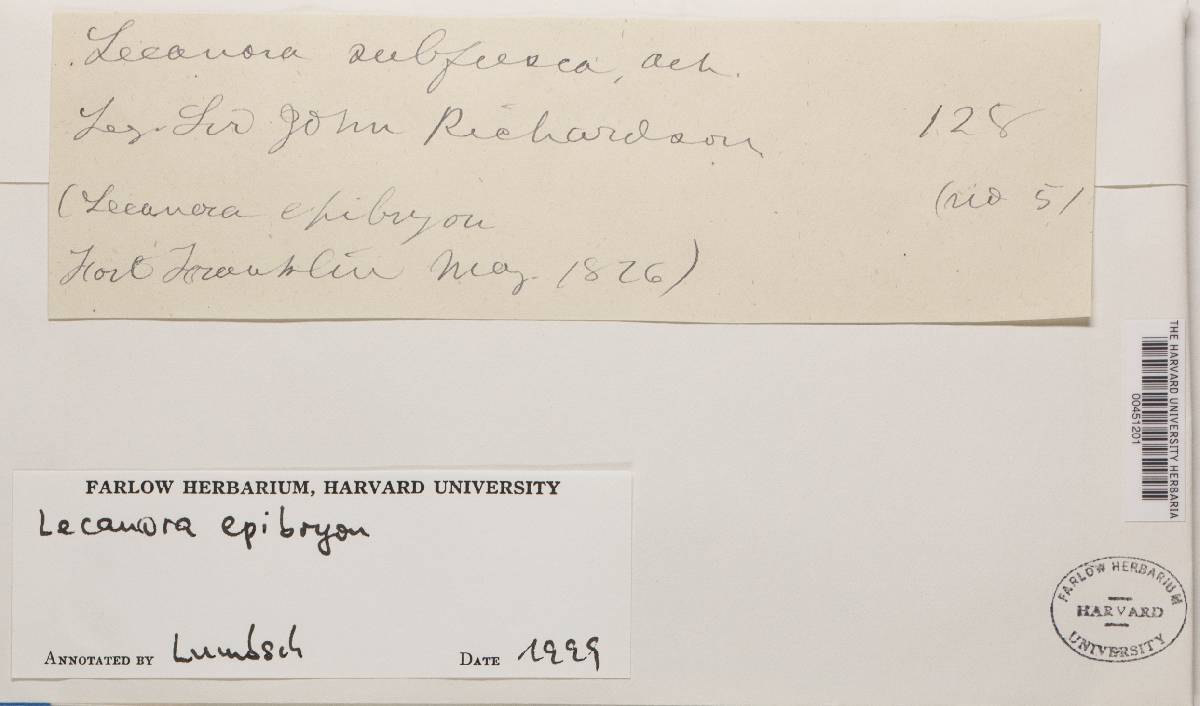 Lecanora subfusca, ach.
Leg. Sir John Richardson 128
(Lecanora epibryon (no 51
Fort Franklin May. 1826)
THE HARVARD UNIVERSITY HERBARIA
00451201
FARLOW HERBARIUM, HARVARD UNIVERSITY
Lecanora epibryon
ANNOTATED BY Lumbsch DATE 1999
FARLOW HERBARIUM
HARVARD
UNIVERSITY